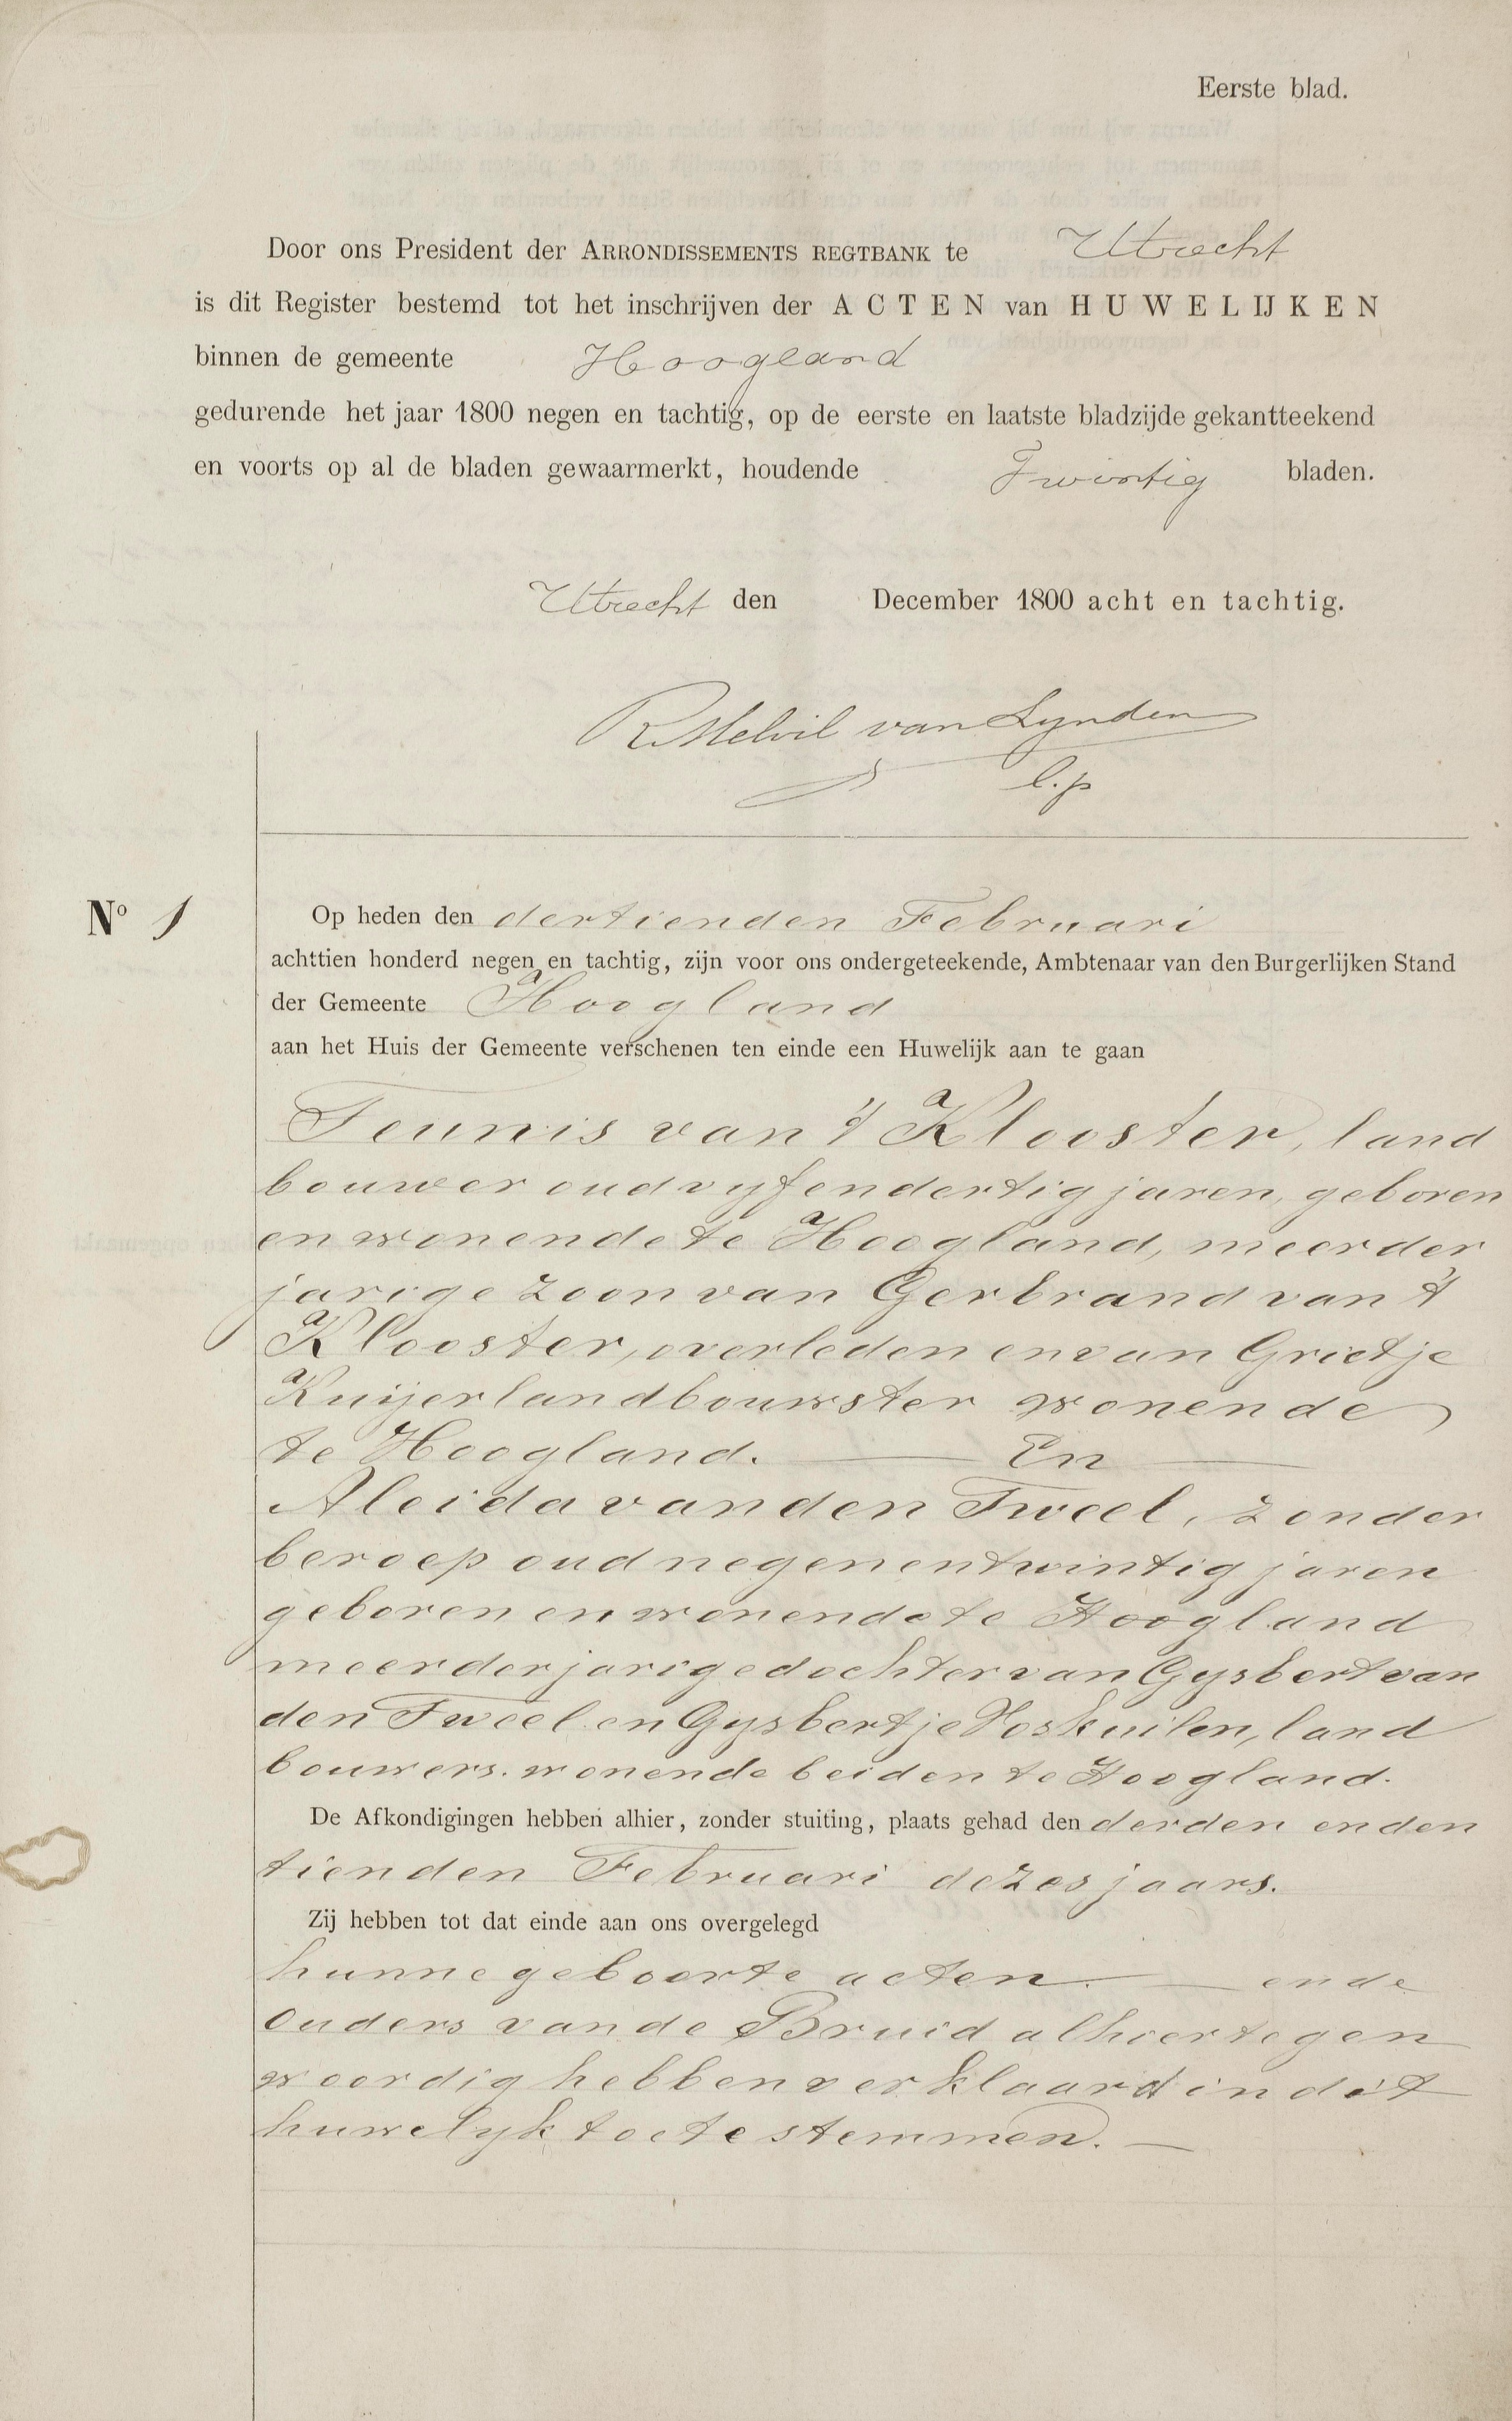 Eerste blad.
Door ons President der ARRONDISSEMENTS REGTBANK te Utrecht
is dit Register bestemd tot het inschrijven der ACTEN van HUWELIJKEN
binnen de gemeente Hoogland
gedurende het jaar 1800 negen en tachtig, op de eerste en laatste bladzijde gekantteekend
en voorts op al de bladen gewaarmerkt, houdende Twintig bladen.
Utrecht den December 1800 acht en tachtig.
R Melvil van Lynden
l.p
No 1
Op heden den dertienden Februari
achttien honderd negen en tachtig, zijn voor ons ondergeteekende, Ambtenaar van den Burgerlijken Stand
der Gemeente Hoogland
aan het Huis der Gemeente verschenen ten einde een Huwelijk aan te gaan
Teunis van 't Klooster, land
bouwer oud vyfendertig jaren, geboren
en wonende te Hoogland, meerder
jarige zoon van Gerbrand van 't
Klooster, overleden en van Grietje
Kuijer landbouwster wonende
te Hoogland. En
Aleida van den Tweel, zonder
beroep oud negenentwintig jaren
geboren en wonende te Hoogland
meerderjarige dochter van Gysbert van
den Tweel en Gysbertje Voskuilen, land
bouwers. wonende beiden te Hoogland.
De Afkondigingen hebben alhier, zonder stuiting, plaats gehad den derden en den
tienden Februari dezes jaars.
Zij hebben tot dat einde aan ons overgelegd
hunne geboorte acten. en de
Ouders van de Bruid alhier tegen
woordig hebben verklaard in dit
huwelyk toe te stemmen.